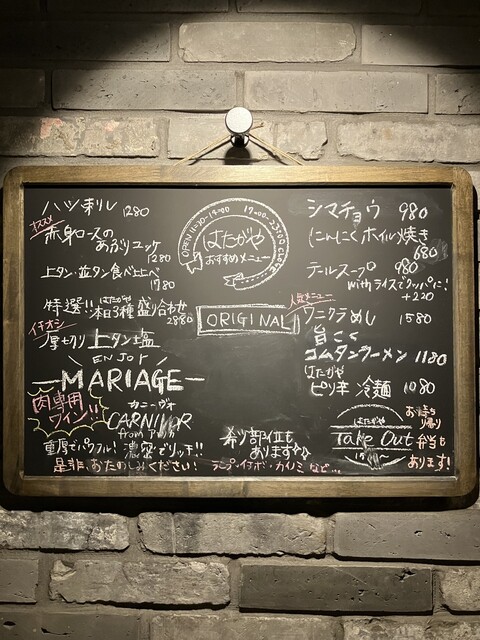 ハツ刺し 1280
オススメ
赤身ロースの
あぶりユッケ
1280
上タン・並タン食べ比べ
1780
特選!! はたがや
本日3種盛り合わせ
2880
イチオシ
厚切り上タン塩
ENJOY
MARIAGE
肉専用
ワイン!!
カニーヴォ
CARNIVOR
from
重厚でパワフル! 濃密でリッチ!!
是非、おたのしみください!
OPEN 11:30-14:00 17:00-23:00 CLOSE
はたがや
おすすめメニュー
ORIGINAL
希少部位も
あります
ランプ・イチボ・カイノミ など…
シマチョウ 980
にんにくホイル焼き
680
テールスープ 980
withライスでクッパに!
+220
人気メニュー
ワニクラめし 1580
旨こく
コムタンラーメン 1180
はたがや
ピリ辛 冷麺 1080
はたがや
Take Out
お持ち
帰り
弁当も
あります!